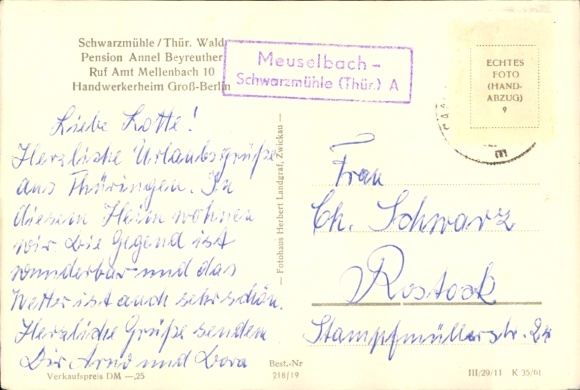 Schwarzmühle / Thür. Wald
Pension Annel Beyreuther
Ruf Amt Mellenbach 10
Handwerkerheim Groß-Berlin
Meuselbach -
Schwarzmühle (Thür.) A
ECHTES
FOTO
(HAND-
ABZUG)
9
Liebe Lotte!
Herzliche Urlaubsgrüße
aus Thüringen. In
diesem Heim wohnen
wir. Die Gegend ist
wunderbar und das
Wetter ist auch sehr schön.
Herzliche Grüße senden
Dir Arno und Dora
— Fotohaus Herbert Landgraf, Zwickau —
Frau
Ch. Schwarz
Rostock
Stampfmüllerstr. 24
Verkaufspreis DM —,25
Best.-Nr
218/19
III/29/11 K 35/61